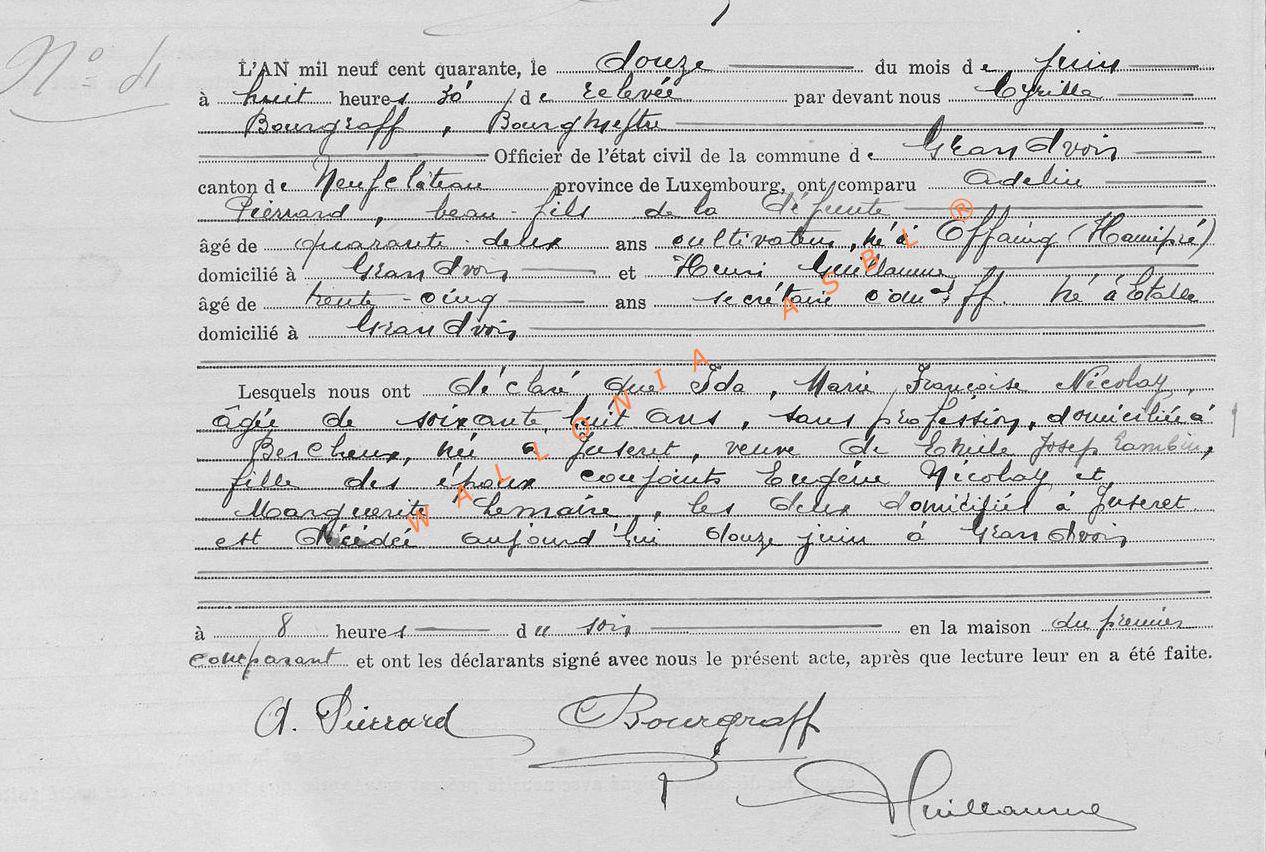 N° 4
L'AN mil neuf cent quarante, le douze du mois de juin
à huit heures 30 de relevée par devant nous Cyrille
Bourgraff, Bourgmestre
Officier de l'état civil de la commune de Grandvoir
canton de Neufchâteau province de Luxembourg, ont comparu Adelin
Pierrard, beau-fils de la défunte
âgé de quarante-deux ans cultivateur, né à Offaing (Hamipré)
domicilié à Grandvoir et Henri Guillaume
âgé de trente-cinq ans secrétaire comal ff. né à Etalle
domicilié à Grandvoir
Lesquels nous ont déclaré que Ida, Marie Françoise Nicolay,
âgée de soixante huit ans, sans profession, domiciliée à
Bercheux, née à Juseret, veuve de Emile Josep Lambin,
fille des époux conjoints Eugène Nicolay et
Marguerite Lemaire, les deux domiciliés à Juseret
est décédée aujourd'hui douze juin à Grandvoir
à 8 heures du soir en la maison du premier
comparant et ont les déclarants signé avec nous le présent acte, après que lecture leur en a été faite.
A. Pierrard Bourgraff
Guillaume
WALLONIA ASBL ®